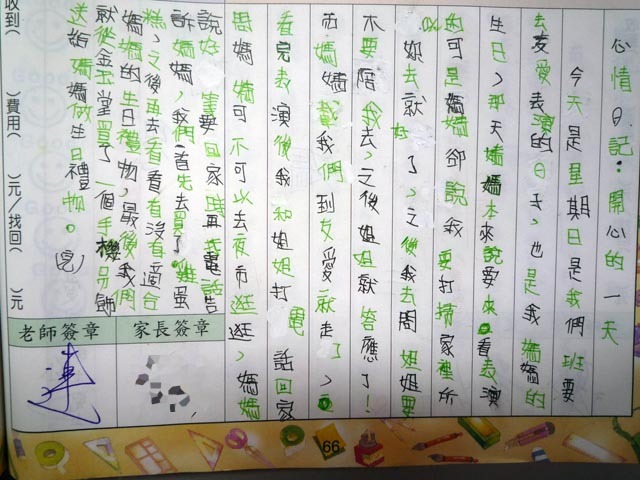 心情日記：開心的一天
今天是星期日是我們班要
去友愛表演的日子、也是我媽媽的
生日、那天媽媽本來說要來看表演
的可是媽媽卻說我要打掃家裡所
以姐去就好了、之後我去問姐姐要
不要陪我去、之後姐姐就答應了！
而媽媽載我們到友愛就走了、
看完表演後我和姐姐打電話回家
問媽媽可不可以去夜市逛逛、媽媽
說好要回家時再打電話告
訴媽媽、我們首先去買了雞蛋
糕、之後再去看看有沒有適合
媽媽的生日禮物、最後我們
就從金玉堂買了一個手機吊飾
送給媽媽做生日禮物。
收到（ ）費用（ ）元/找回（ ）元
家長簽章
老師簽章
66